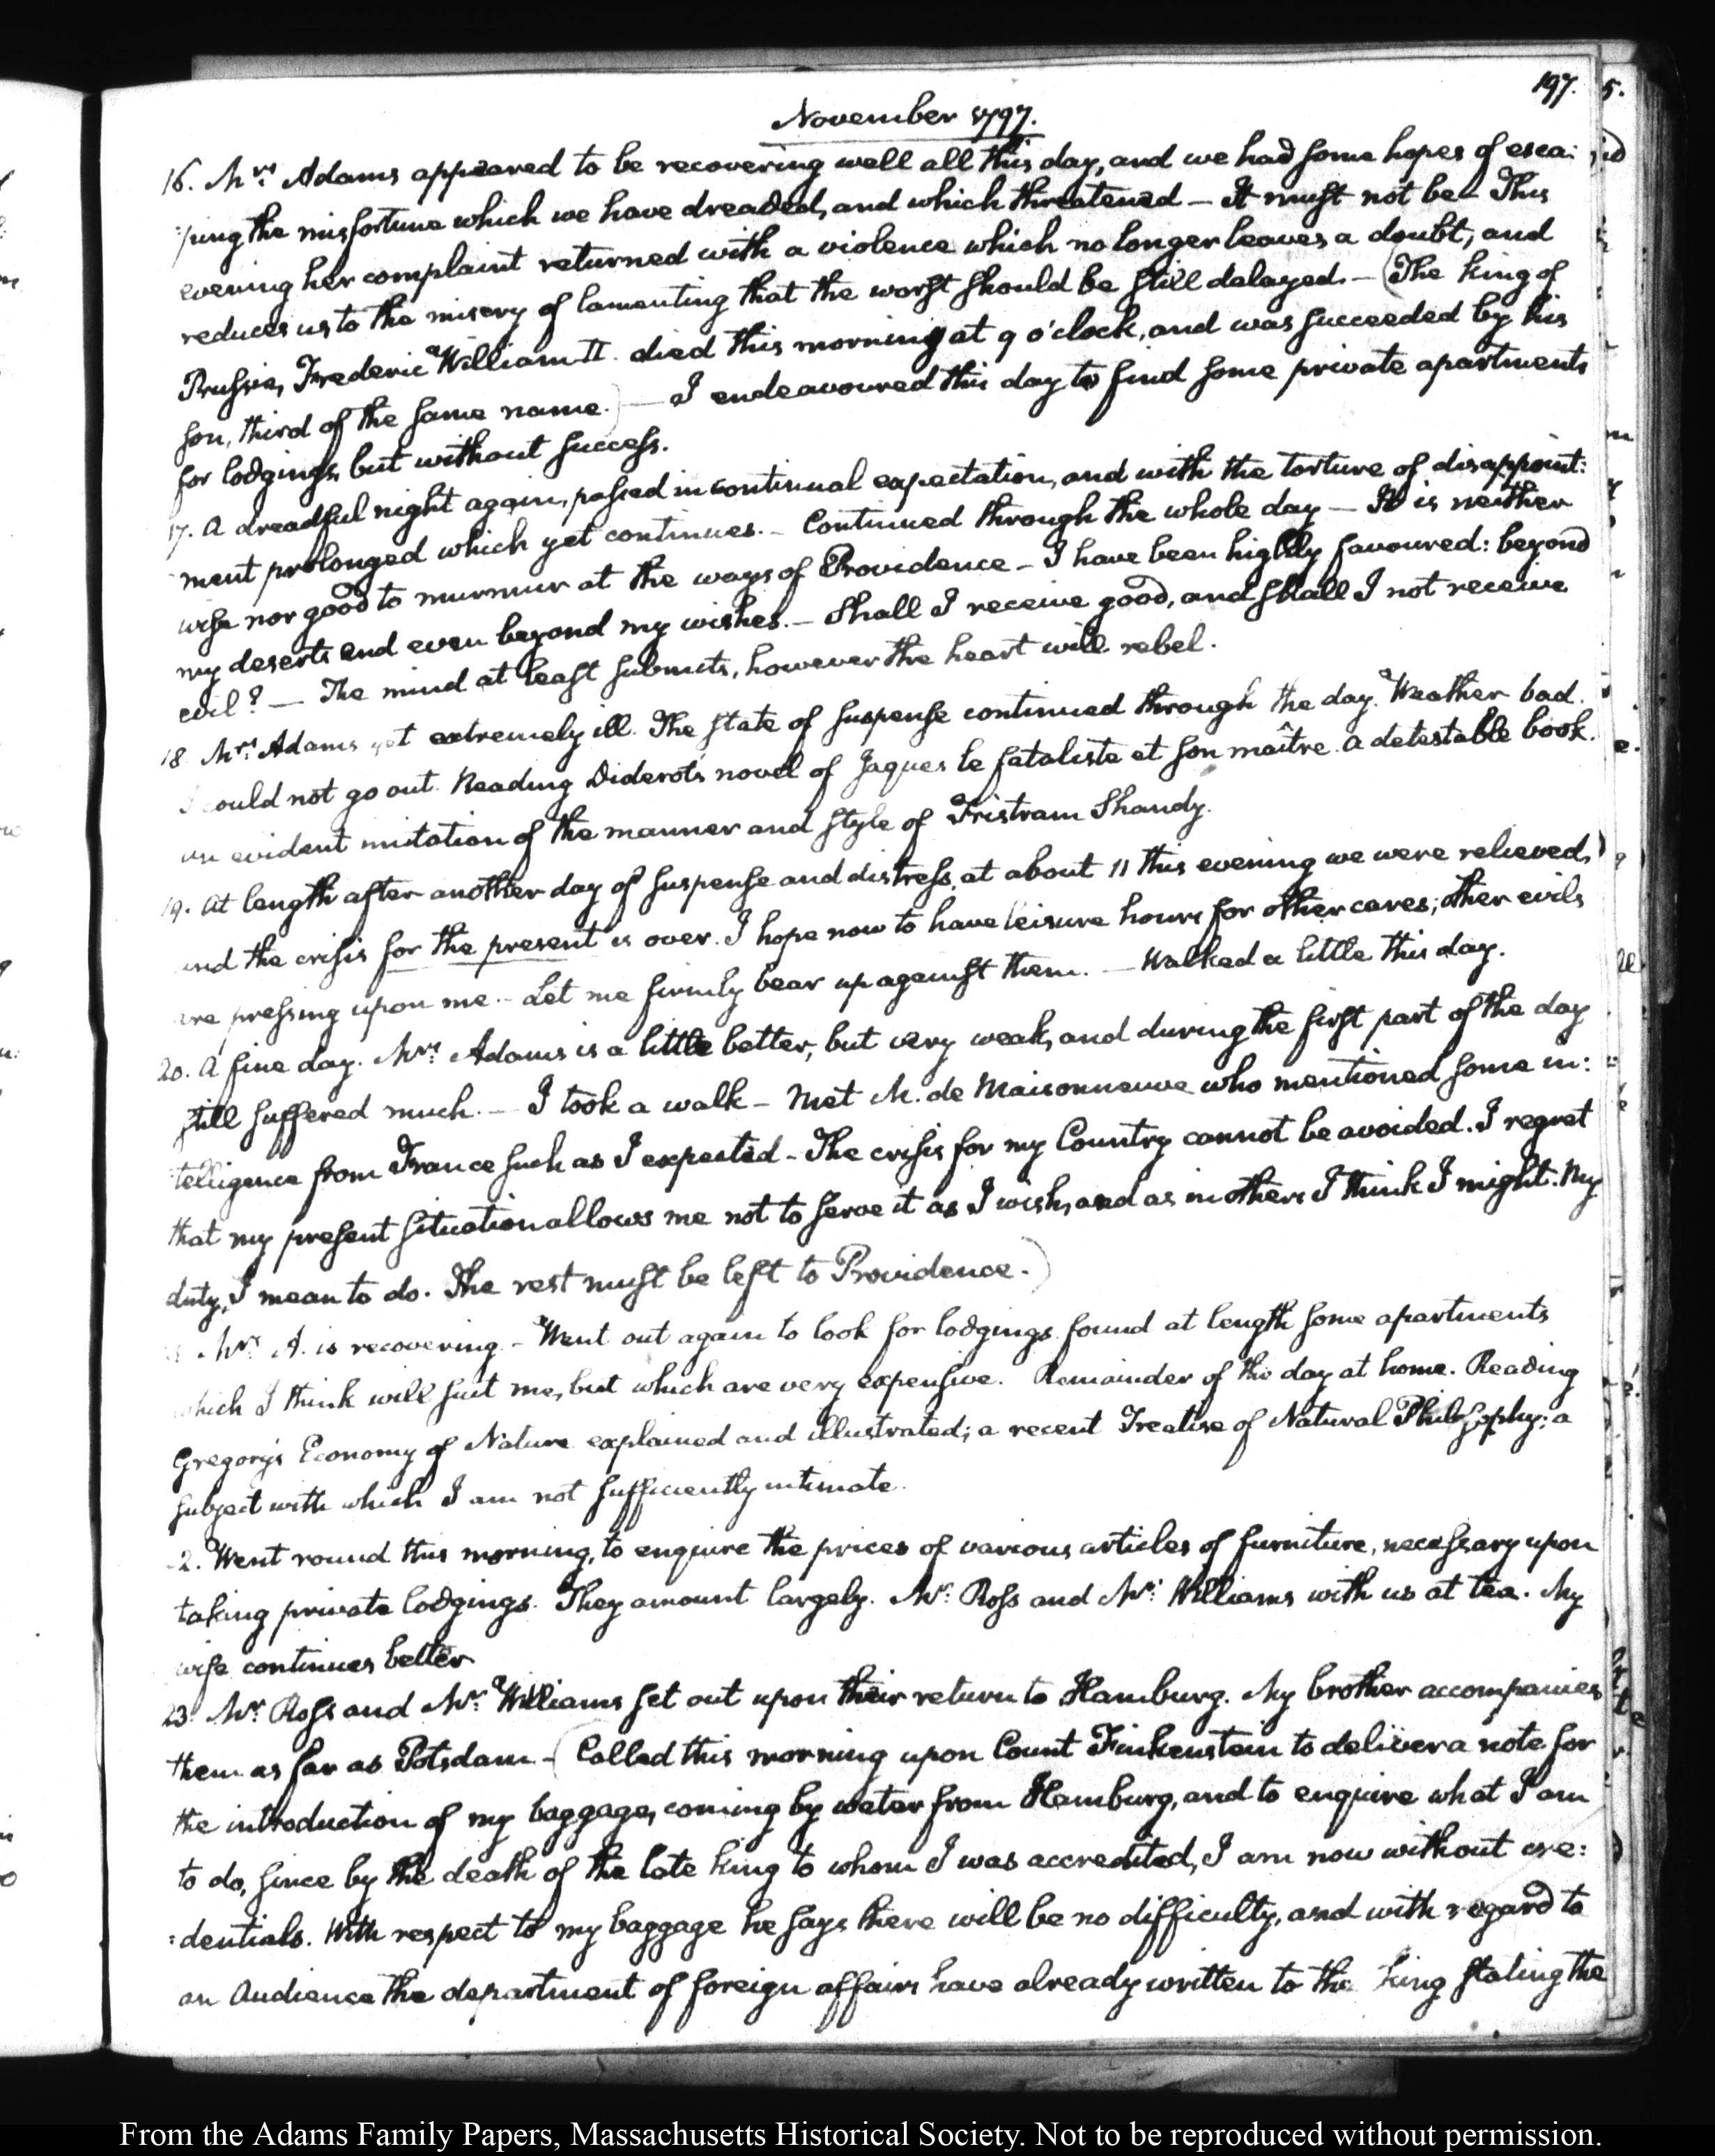 197.
November 1797.
16. Mrs: Adams appeared to be recovering well all this day, and we had some hopes of esca:
:ping the misfortune which we have dreaded, and which threatened — It must not be — This
evening her complaint returned with a violence which no longer leaves a doubt, and
reduces us to the misery of lamenting that the worst should be still delayed. — (The king of
Prussia, Frederic William II. died this morning at 9 o'clock, and was succeeded by his
son, third of the same name.) — I endeavoured this day to find some private apartments
for lodgings, but without success.
17. A dreadful night again, passed in continual expectation, and with the torture of disappoint:
ment prolonged which yet continues. — Continued through the whole day — It is neither
wise nor good to murmur at the ways of Providence — I have been highly favoured: beyond
my deserts and even beyond my wishes. — Shall I receive good, and shall I not receive
evil? — The mind at least submits, however the heart will rebel.
18 Mrs: Adams yet extremely ill. The state of suspense continued through the day. Weather bad.
I could not go out. Reading Diderot's novel of Jaques le fataliste et son maître. a detestable book.
an evident imitation of the manner and style of Tristram Shandy.
19. At length after another day of suspense and distress, at about 11 this evening we were relieved,
and the crisis for the present is over. I hope now to have leisure hours for other cares; other evils
are pressing upon me. — Let me firmly bear up against them. — Walked a little this day.
20. A fine day. Mrs: Adams is a little better, but very weak, and during the first part of the day
still suffered much. — I took a walk — Met M. de Maisonneuve who mentioned some in:
telligence from France such as I expected — The crisis for my Country cannot be avoided. I regret
that my present situation allows me not to serve it as I wish, and as in others I think I might. My
duty, I mean to do. The rest must be left to Providence.)
Mrs: A. is recovering — Went out again to look for lodgings. found at length some apartments
which I think will suit me, but which are very expensive. Remainder of the day at home. Reading
Gregory's Economy of Nature explained and illustrated; a recent Treatise of Natural Philosophy; a
subject with which I am not sufficiently intimate.
2. Went round this morning, to enquire the prices of various articles of furniture, necessary upon
taking private lodgings. They amount largely. Mr: Ross and Mr: Williams with us at tea. My
wife continues better
23. Mr: Ross and Mr: Williams set out upon their return to Hamburg. My brother accompanies
them as far as Potsdam — (Called this morning upon Count Finkenstein to deliver a note for
the introduction of my baggage, coming by water from Hamburg, and to enquire what I am
to do, since by the death of the late king to whom I was accredited, I am now without cre:
:dentials. With respect to my baggage he says there will be no difficulty, and with regard to
an Audience the department of foreign affairs have already written to the king stating the
From the Adams Family Papers, Massachusetts Historical Society. Not to be reproduced without permission.